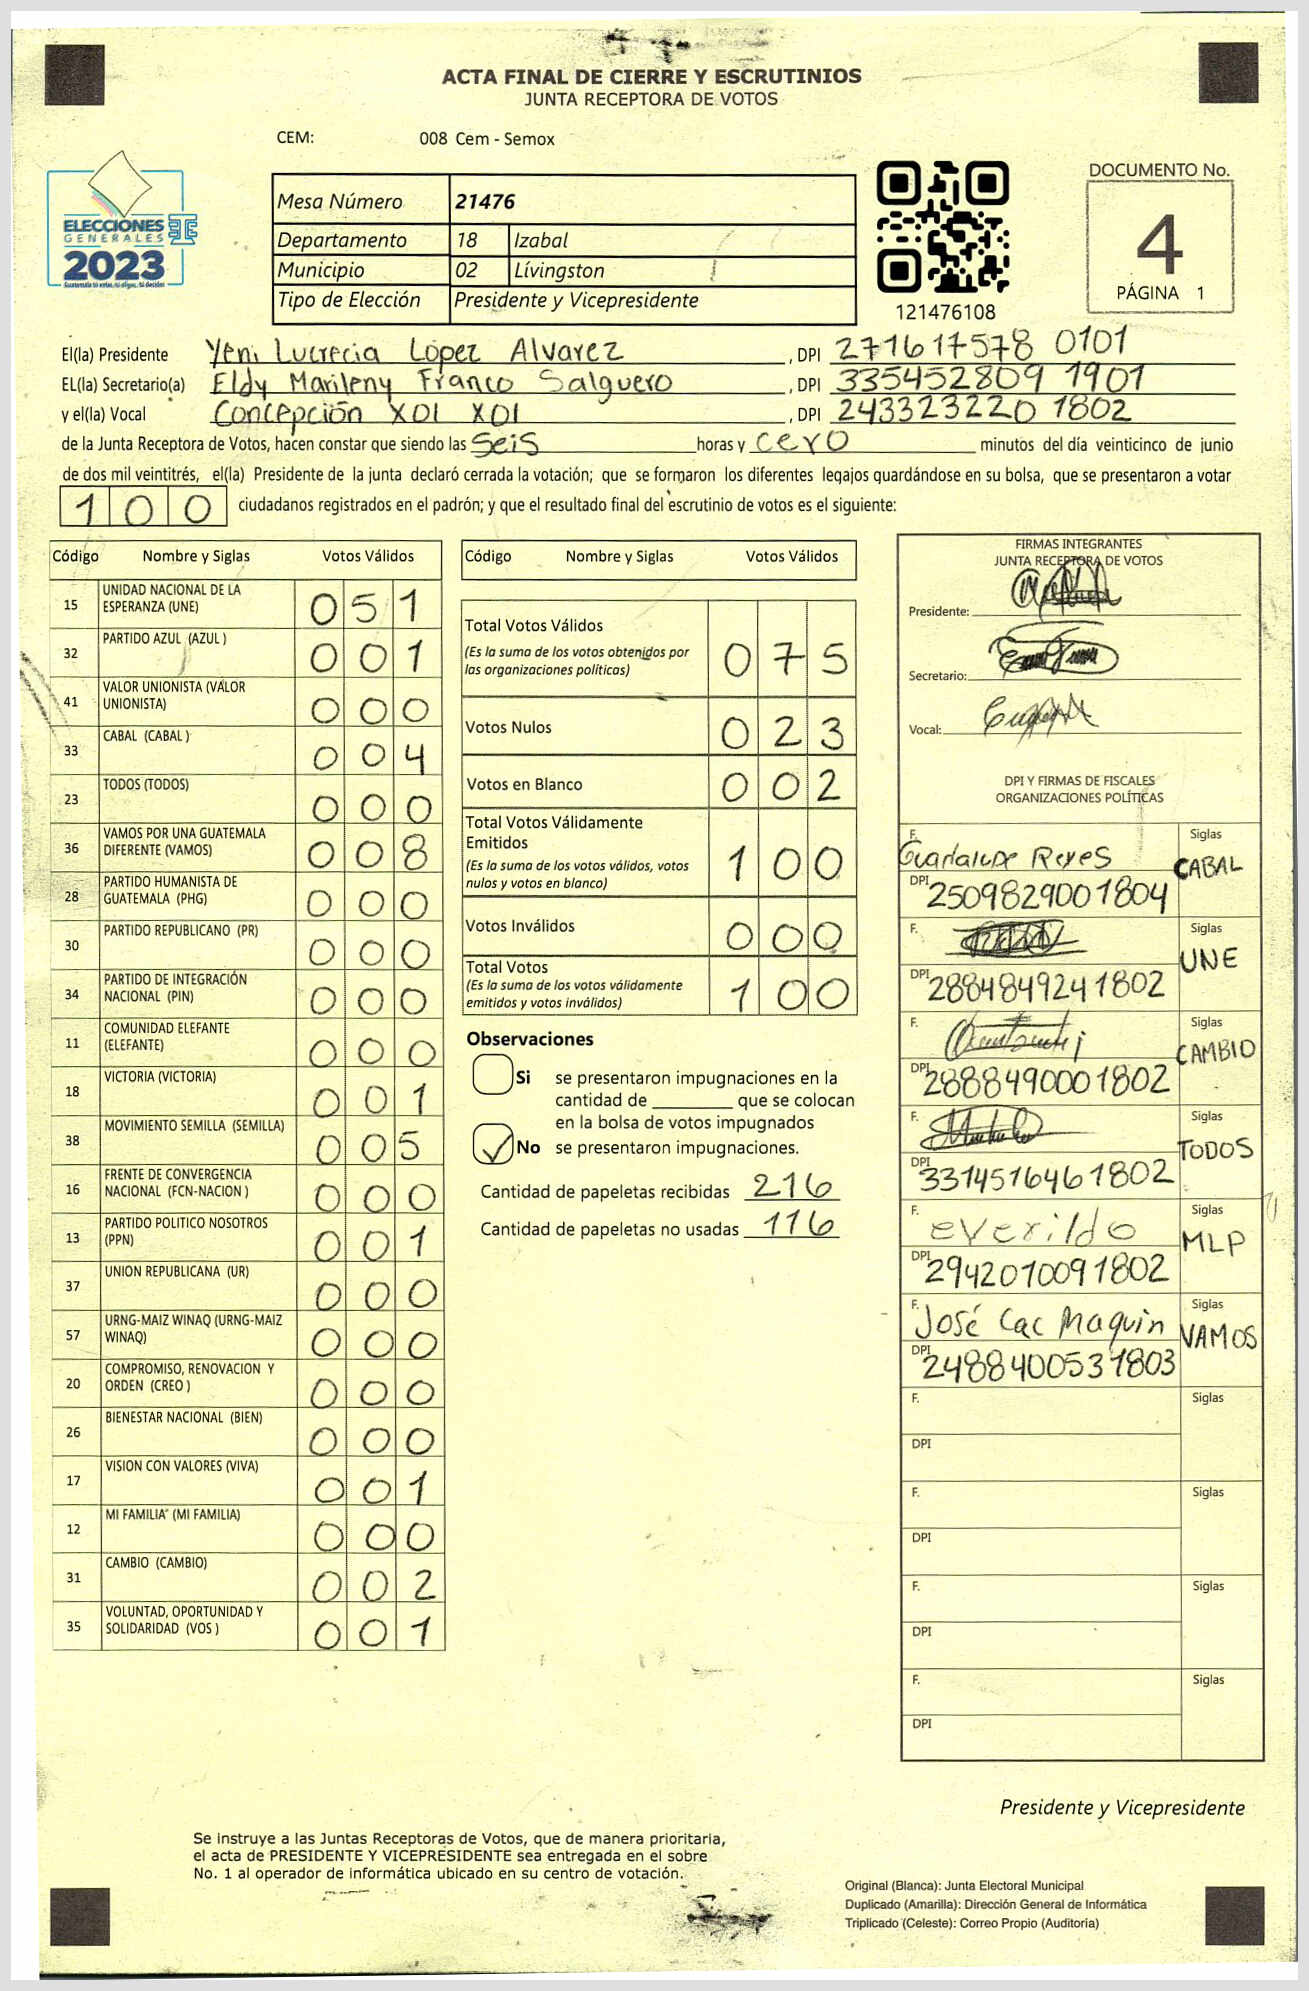 ACTA FINAL DE CIERRE Y ESCRUTINIOS
JUNTA RECEPTORA DE VOTOS
CEM: 008 Cem - Semox
ELECCIONES
GENERALES
2023
Mesa Número 21476
Departamento 18 Izabal
Municipio 02 Lívingston
Tipo de Elección Presidente y Vicepresidente
121476108
DOCUMENTO No.
4
PÁGINA 1
El(la) Presidente Yeni Lucrecia López Alvarez , DPI 271617578 0101
EL(la) Secretario(a) Eldy Marileny Franco Salguero , DPI 335452809 1901
y el(la) Vocal Concepción XOl XOl , DPI 243323220 1802
de la Junta Receptora de Votos, hacen constar que siendo las seis horas y cero minutos del día veinticinco de junio
de dos mil veintitrés, el(la) Presidente de la junta declaró cerrada la votación; que se formaron los diferentes legajos guardándose en su bolsa, que se presentaron a votar
100 ciudadanos registrados en el padrón; y que el resultado final del escrutinio de votos es el siguiente:
Código Nombre y Siglas Votos Válidos
15 UNIDAD NACIONAL DE LA ESPERANZA (UNE) 051
32 PARTIDO AZUL (AZUL ) 001
41 VALOR UNIONISTA (VALOR UNIONISTA) 000
33 CABAL (CABAL ) 004
23 TODOS (TODOS) 000
36 VAMOS POR UNA GUATEMALA DIFERENTE (VAMOS) 008
28 PARTIDO HUMANISTA DE GUATEMALA (PHG) 000
30 PARTIDO REPUBLICANO (PR) 000
34 PARTIDO DE INTEGRACIÓN NACIONAL (PIN) 000
11 COMUNIDAD ELEFANTE (ELEFANTE) 000
18 VICTORIA (VICTORIA) 001
38 MOVIMIENTO SEMILLA (SEMILLA) 005
16 FRENTE DE CONVERGENCIA NACIONAL (FCN-NACION ) 000
13 PARTIDO POLITICO NOSOTROS (PPN) 001
37 UNION REPUBLICANA (UR) 000
57 URNG-MAIZ WINAQ (URNG-MAIZ WINAQ) 000
20 COMPROMISO, RENOVACION Y ORDEN (CREO ) 000
26 BIENESTAR NACIONAL (BIEN) 000
17 VISION CON VALORES (VIVA) 001
12 MI FAMILIA" (MI FAMILIA) 000
31 CAMBIO (CAMBIO) 002
35 VOLUNTAD, OPORTUNIDAD Y SOLIDARIDAD (VOS ) 001
Código Nombre y Siglas Votos Válidos
Total Votos Válidos 075
(Es la suma de los votos obtenidos por
las organizaciones políticas)
Votos Nulos 023
Votos en Blanco 002
Total Votos Válidamente
Emitidos 100
(Es la suma de los votos válidos, votos
nulos y votos en blanco)
Votos Inválidos 000
Total Votos 100
(Es la suma de los votos válidamente
emitidos y votos inválidos)
Observaciones
Si se presentaron impugnaciones en la
cantidad de ________ que se colocan
en la bolsa de votos impugnados
No se presentaron impugnaciones.
Cantidad de papeletas recibidas 216
Cantidad de papeletas no usadas 116
FIRMAS INTEGRANTES
JUNTA RECEPTORA DE VOTOS
Presidente:
Secretario:
Vocal:
DPI Y FIRMAS DE FISCALES
ORGANIZACIONES POLÍTICAS
F. Guadalupe Reyes Siglas CABAL
DPI 2509829001804
F. Siglas UNE
DPI 2884849241802
F. Siglas CAMBIO
DPI 2888490001802
F. Siglas TODOS
DPI 3314516461802
F. everildo Siglas MLP
DPI 2942010091802
F. José Cac Maquin Siglas VAMOS
DPI 2488400531803
F. Siglas
DPI
F. Siglas
DPI
F. Siglas
DPI
F. Siglas
DPI
Presidente y Vicepresidente
Se instruye a las Juntas Receptoras de Votos, que de manera prioritaria,
el acta de PRESIDENTE Y VICEPRESIDENTE sea entregada en el sobre
No. 1 al operador de informática ubicado en su centro de votación.
Original (Blanca): Junta Electoral Municipal
Duplicado (Amarilla): Dirección General de Informática
Triplicado (Celeste): Correo Propio (Auditoria)